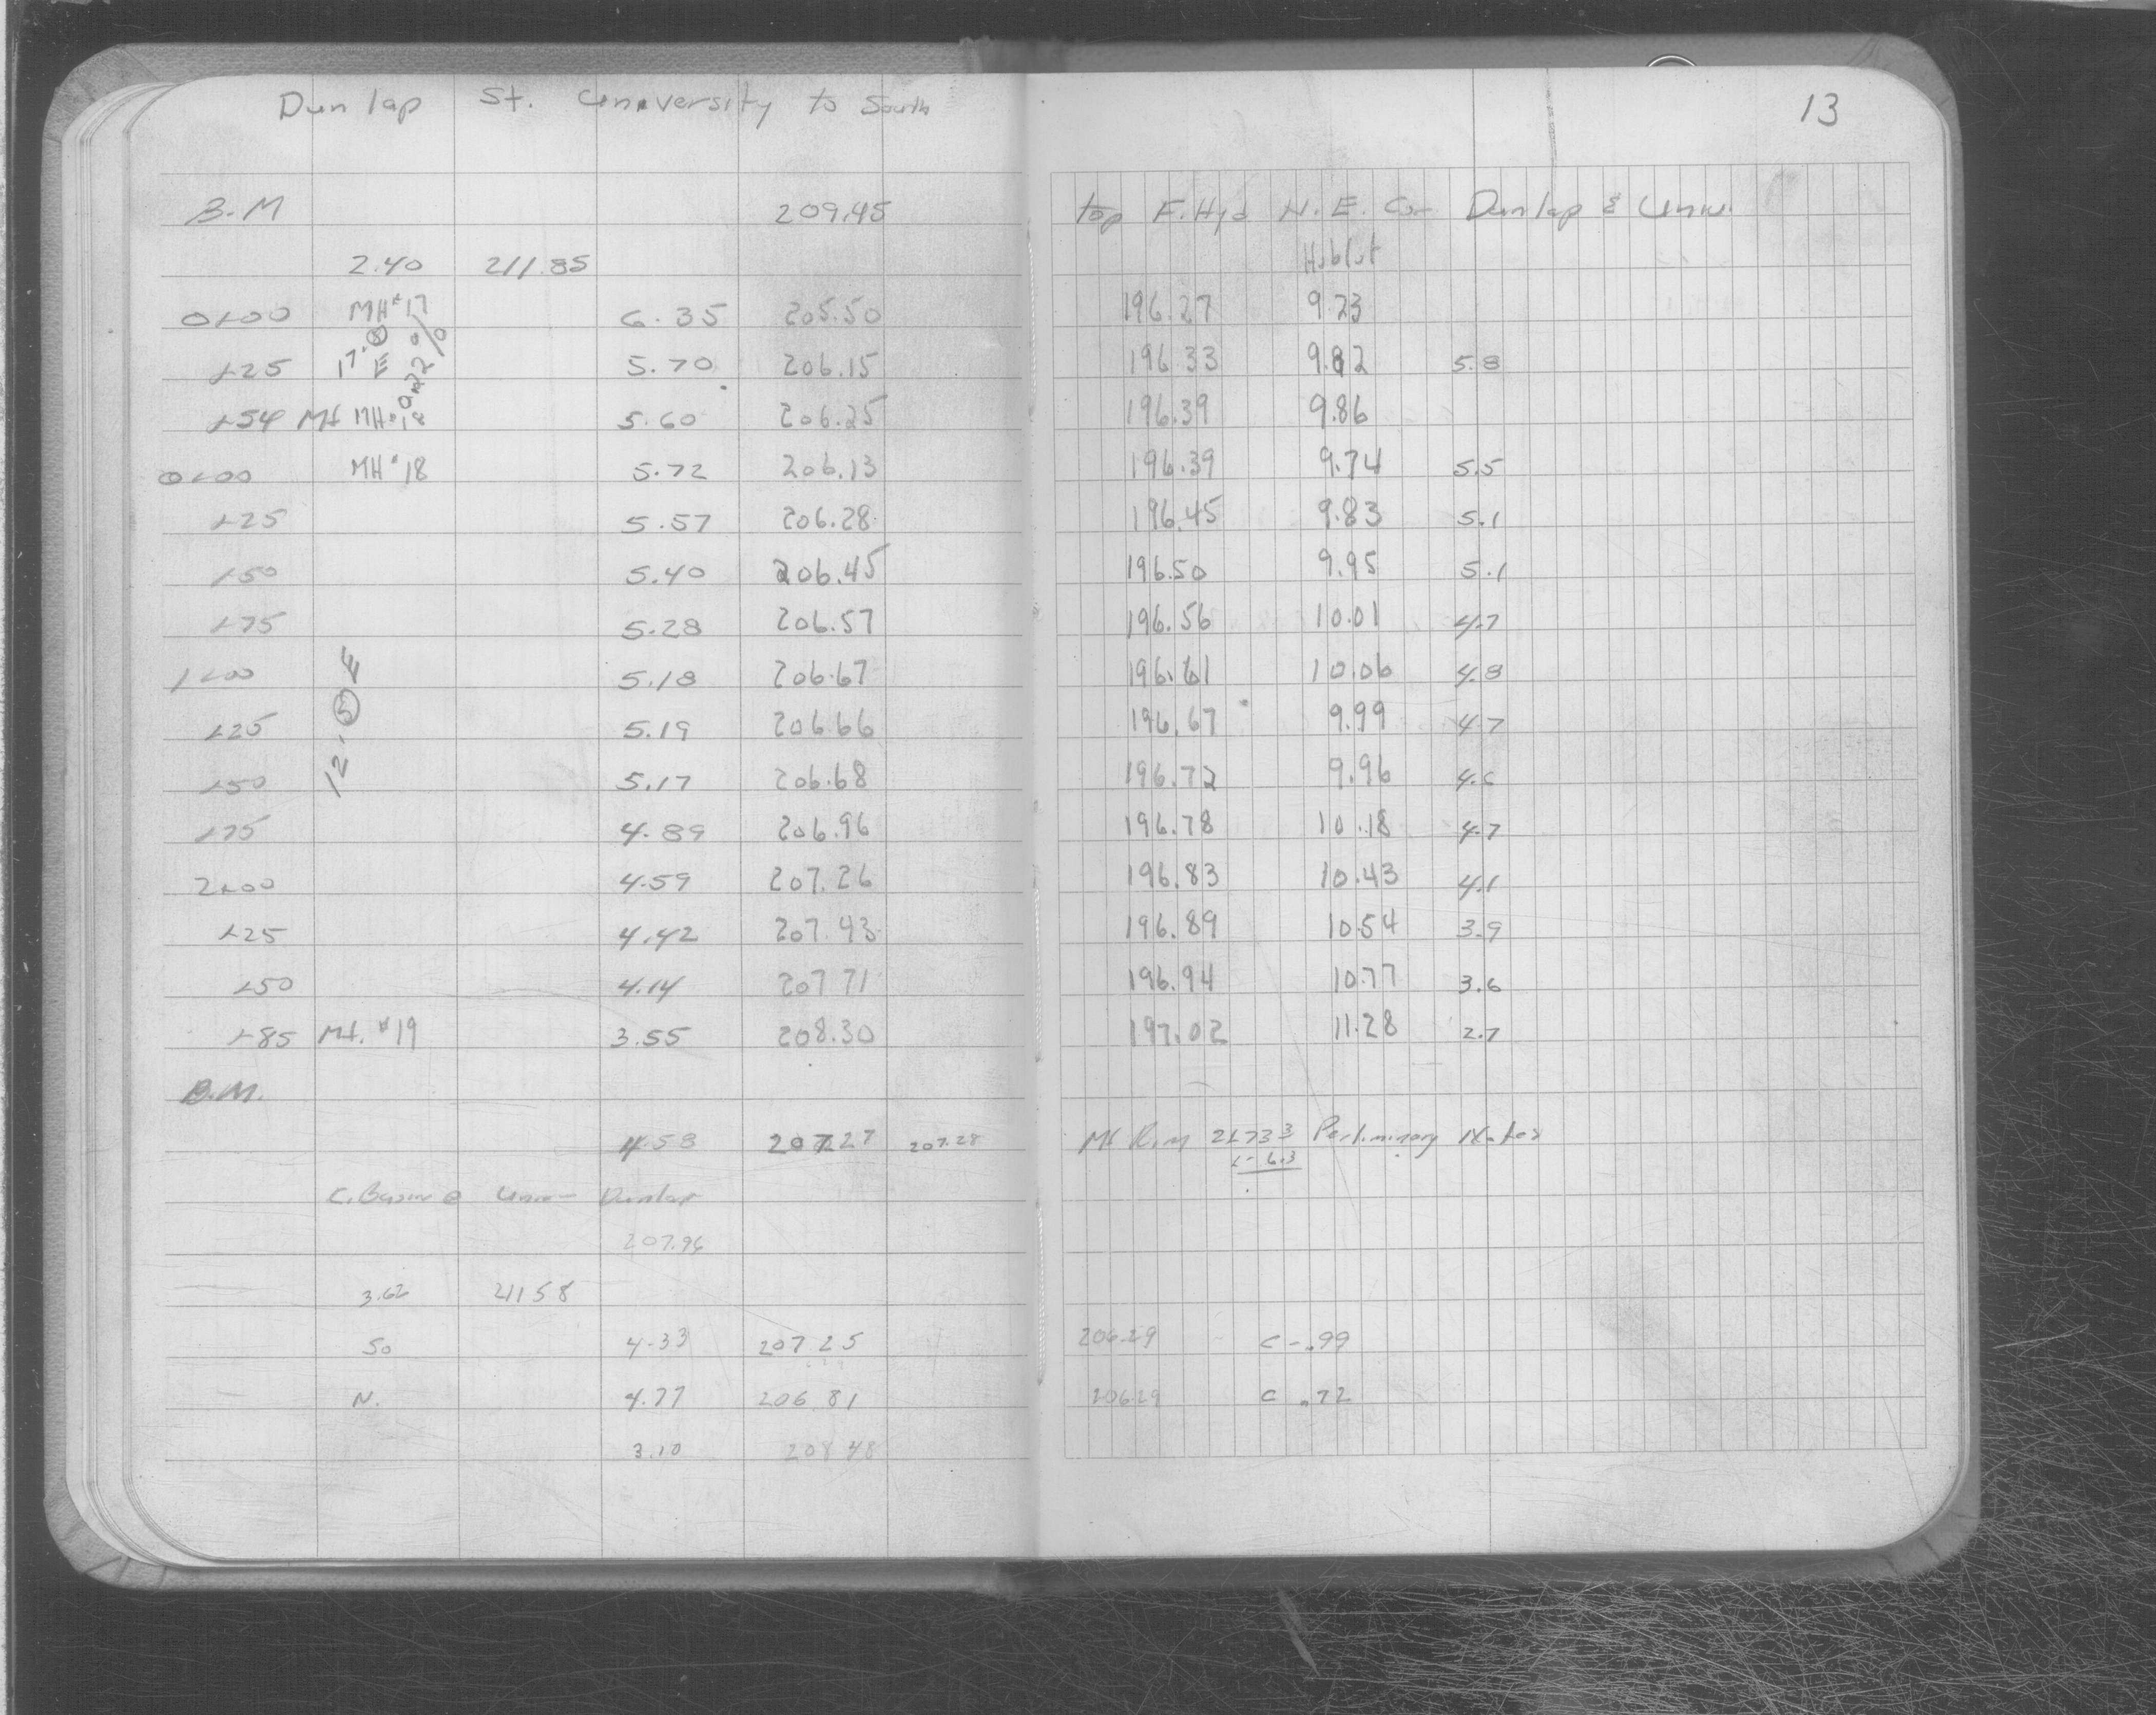 Dunlap St. University to South
13
B.M 209.45 top F.Hyd N.E. Cor Dunlap & Univ.
2.40 211.85
0+00 MH#17 6.35 205.50 196.27 9.23
+25 5.70 206.15 196.33 9.82 5.8
+54 MH MH 18 5.60 206.25 196.39 9.86
17' E 0.22%
0+00 MH#18 5.72 206.13 196.39 9.74 5.5
+25 5.57 206.28 196.45 9.83 5.1
+50 5.40 206.45 196.50 9.95 5.1
+75 5.28 206.57 196.56 10.01 4.7
1+00 5.18 206.67 196.61 10.06 4.8
12' Ⓢ E
+25 5.19 206.66 196.67 9.99 4.7
+50 5.17 206.68 196.72 9.96 4.6
+75 4.89 206.96 196.78 10.18 4.7
2+00 4.59 207.26 196.83 10.43 4.1
+25 4.42 207.43 196.89 10.54 3.9
+50 4.14 207.71 196.94 10.77 3.6
+85 MH. #19 3.55 208.30 197.02 11.28 2.7
B.M.
4.58 207.27 207.28 MH Rim 2+73 Notes
C. Basin @ Univ - Dunlap
207.96
3.62 211 58
So 4.33 207 25 206.29 C - .99
N. 4.77 206 81 206 29 C .72
3.10 208 48